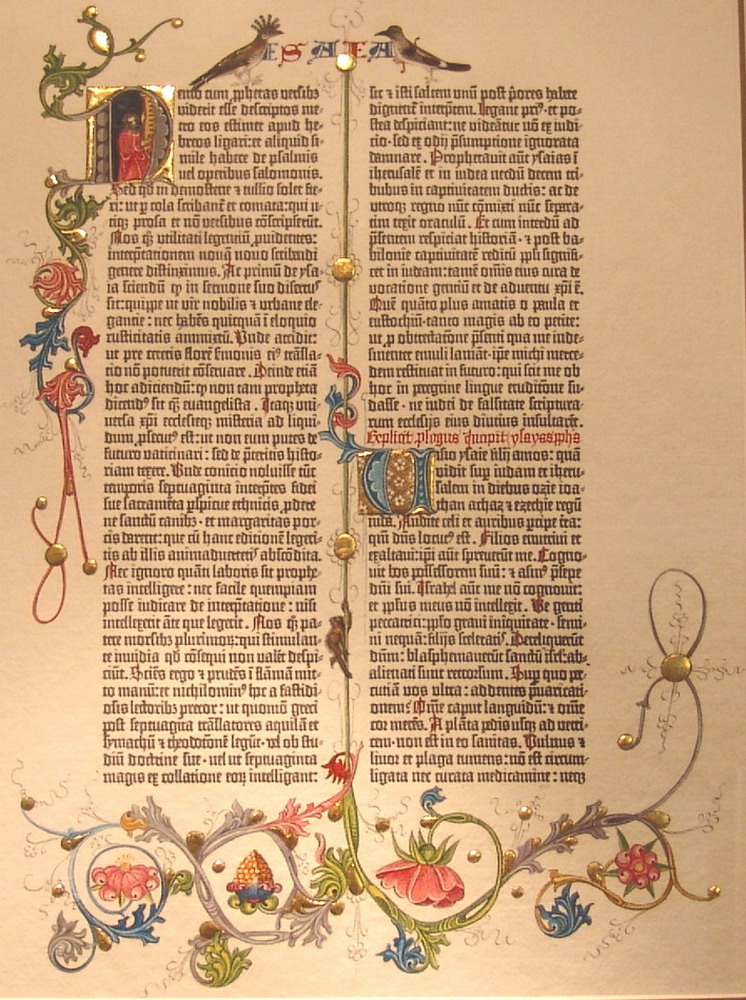 ESAIA
Nemo cum prophetas versibus
viderit esse descriptos me-
tro eos estimet apud he-
breos ligari: et aliquid si-
mile habere de psalmis
vel operibus salomonis.
Sed qd in demostene et tullio solet fie-
ri: ut per cola scribant et comata: qui u-
tiq prosa et nō versibus cōscripserūt.
Nos q utilitati legenciū providentes:
interpretationem novā novo scribendi
genere distinximus. Ac primū de ysa-
ia sciendū q in sermone suo disertus
sit: quippe ut vir nobilis et urbane ele-
gantie: nec habēs quicquā ī eloquio
rusticitatis ammixtū. Unde accidit:
ut pre ceteris florē sermonis eius trāsla-
cio nō potuerit cōservare. Deinde etiā
hoc adiciendū: q non tam propheta
dicendus sit q evangelista. Itaq uni-
versa xpi ecclesieq misteria ad liqui-
dum persecutus est: ut non eum putes de
futuro vaticinari: sed de preteritis histo-
riam texere. Unde conicio noluisse tūc
temporis septuaginta interpretes fidei
sue sacramēta perspicue ethnicis prodere
ne sanctū canibus et margaritas por-
cis darent: que cū hanc editionē legeri-
tis ab illis animadvertetis abscōdita.
Nec ignoro quāti laboris sit prophe-
tas intelligere: nec facile quempiam
posse iudicare de interpretatione: nisi
intellexerit āte que legerit. Nos q pa-
tere morsibus plurimorum: qui stimulan-
te invidia qd cōsequi non valēt despi-
ciūt. Sciēs ergo et prudēs ī flāmam mit-
to manū: et nichilominus hoc a fastidi-
osis lectoribus precor: ut quomō greci
post septuaginta trāslatores aquilā et
symachū et theodotionē legūt vel ob stu-
diū doctrine sue vel ut septuaginta
magis ex collatione eorum intelligant:
sic et isti saltem unū post priores habere
dignent interpretem. Legant prius et po-
stea despiciant: ne videātur nō ex iudi-
cio sed ex odij presumptione ignorata
damnare. Prophetavit autē ysaias ī
iherusalē et in iudea necdū decem tri-
bubus in captivitatem ductis: ac de
utroq regno nūc cōmixti nūc separa-
tim texit oraculū. Et cum interdū ad
presentem respiciat historiā et post ba-
bilonie captivitatē reditū populi signifi-
cet in iudeam: tamē omīs eius cura de
vocatione gentiū et de adventu xpi ē.
Quē quāto plus amatis o paula et
eustochiū: tanto magis ab eo petite:
ut pro obtrectatione presenti qua me inde-
sinenter emuli laniāt: ipse michi merce-
dem restituat in futuro: qui scit me ob
hoc in peregrine lingue erudicione su-
dasse ne iudei de falsitate scriptura-
rum ecclesijs eius diutius insultarēt.
Explicit prologus Incipit ysayas propheta
Visio ysaie filij amos: quā
vidit sup iudam et iheru-
salem in diebus ozie ioa-
than achaz et ezechie regū
iuda. Audite celi et auribus percipe terra:
qm dns locutus est. Filios enutrivi et
exaltavi: ipi autē spreverūt me. Cogno-
vit bos possessorem suū: et asinus presepe
dni sui. Israhel autē me nō cognovit:
et ppls meus nō intellexit. Ve genti
peccatrici: pplo gravi iniquitate semi-
ni nequā: filijs sceleratis. Dereliquerūt
dnm: blasphemaverūt sanctū israhel: ab-
alienati sunt retrorsum. Super quo per-
cutiā vos ultra: addentes prevaricati-
onem: Omne caput languidū: et omne
cor merēs. A planta pedis usq ad verti-
cem non est in eo sanitas. Vulnus et
livor et plaga tumens: nō est circum-
ligata nec curata medicamine: neq